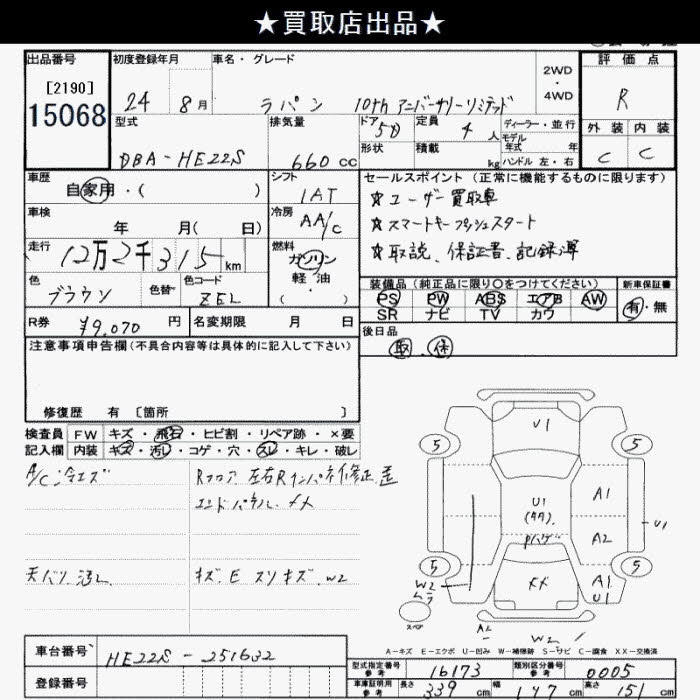 ★買取店出品★
出品番号
[2190]
15068
初度登録年月
24 8月
車名・グレード
ラパン 10th アニバーサリーリミテッド
2WD
・
4WD
評価点
R
外装 内装
C C
型式
DBA-HE22S
排気量
660 cc
ドア 5D
形状
定員 4 人
積載 kg
ディーラー・並行
モデル
年式 年
ハンドル 左・右
車歴
自家用・( )
シフト
IAT
車検
年 月( 日)
冷房
AA/C
走行
12万2千315 km
燃料
ガソリン
軽油・
( )
色
ブラウン
色替
色コード
ZEL
R券 ¥9,070 円
名変期限 月 日
セールスポイント(正常に機能するものに限ります)
☆ユーザー買取車
☆スマートキープッシュスタート
☆取説、保証書、記録簿
装備品(純正品に限り○をつけてください)
新車保証書
PS PW ABS エアB AW
SR ナビ TV カワ
有・無
後日品
取.保
注意事項申告欄(不具合内容等は具体的に記入して下さい)
修復歴 有 〔箇所 〕
検査員 FW キズ・飛石・ヒビ割・リペア跡・×要
記入欄 内装 キズ・汚レ・コゲ・穴・スレ・キレ・破レ
A/C冷エズ
Rフロア 左右Rインパネ修正歪
エンドパネル
天バリ汚レ
キズ.E スリキズ.W2
U1
5 5
A1
U1
(タタ)
Pハゲ
A2
U1
5 5
W2
ムラ
XX
A1
U1
スペア
A2
W2
A-キズ E-エクボ U-凹み W-補修跡 S-サビ C-腐食 XX-交換済
車台番号 HE22S-251632
登録番号
型式指定番号
参考
16173
類別区分番号
参考
0005
車庫証明用
参考
長さ 339 cm
幅 147 cm
高さ 151 cm